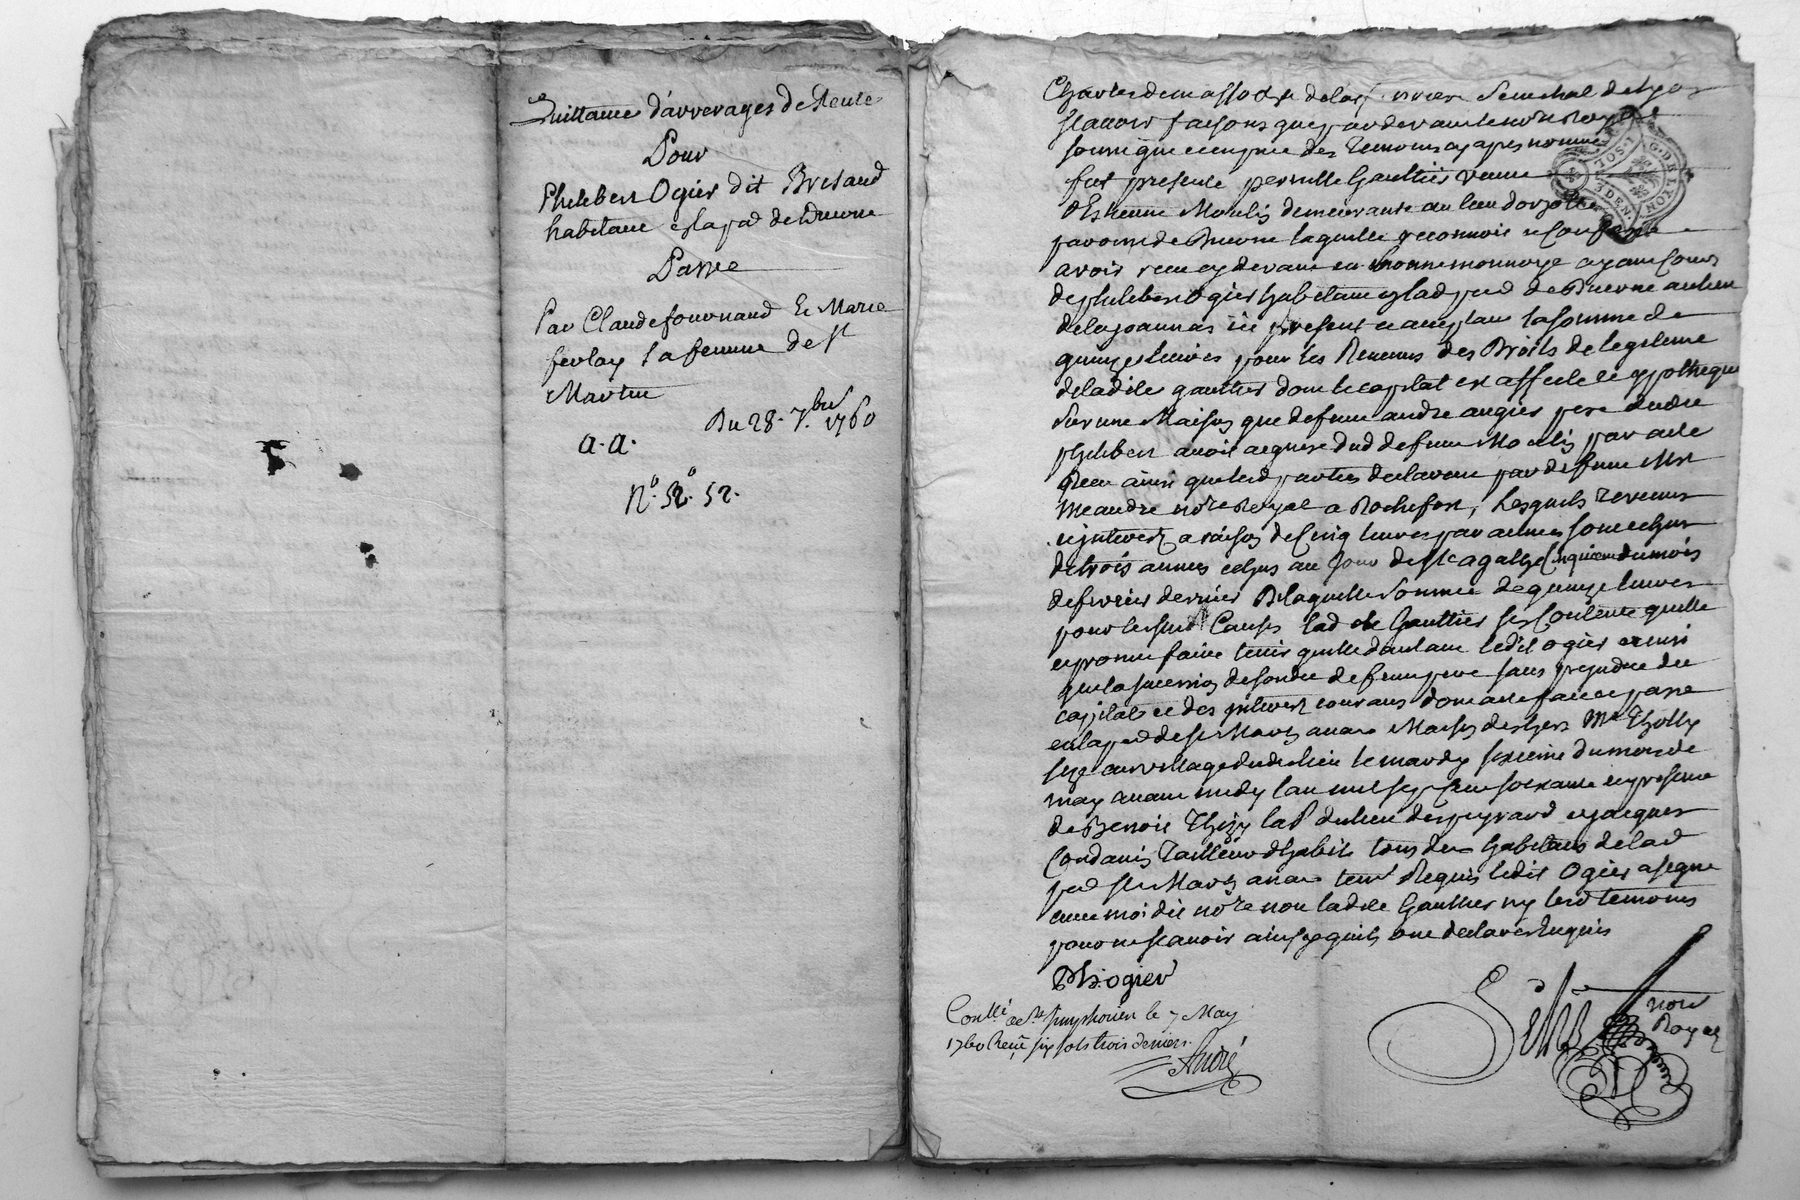 Quittance d'arrerages de Rente
Pour
Philebert Ogier dit Brisaud
habitant en la pad de Duerne
Passée
Par Claude fournaud Et Marie
ferlay sa femme de st
Martin
Du 28. 7.bre 1760
a. a.
N.o 52.o 52.
Charles de masso de la f senechal de lyon
scavoir faisons que par devant le notre Royal
soussigné et en pnce des temoins cy apres nommés
fut presente pernette Gauttier veuve
d'Estienne Moulin demeurante au lieu d'orjolle
paroisse de Duerne laquelle reconnoit et confesse
avoir receu cy devant en bonne monnoye ayant cours
de philebert Ogier habitant en lad pad de Duerne au lieu
de la joannas icy present et acceptant la somme de
quinze livres pour les Revenus des Droits de legitime
de ladite gauttier dont le capital est affecté et ypothequé
sur une Maison que defunt andré augier pere dudit
philebert avoit acquise dud defunt Moulin par acte
Receu ainsi que lesd parties declarent par defunt Me
Meandre notre Royal a Rochefort, lesquels revenus
et interest a raison de Cinq livres par année sont echus
de trois années echus au jour de ste agathe Cinquieme du mois
de fevrier dernier De laquelle somme de quinze livres
pour les susd Causes lad Gauttier s'est contente quitte
et promet faire tenir quitte dautant ledit ogier et aussi
que la succession de sondit defunt pere sans prejudice du
capital et des interest courans dont acte fait et passé
en la pad de st Martin annau Maison des hers Mre Tholly
size au village dudit lieu le mardy sixieme du mois de
may avant midy l'an mil sept cent soixante en presence
de Benoit Thizy lab du lieu de peyrard et jacques
Condamin Tailleur d'habits tous deux habitans de lad
pad st Martin annau tem Requis ledit Ogier a signé
avec moi dit notre non ladite Gauttier ny lesd temoins
pour ne scavoir ainsy quils ont declaré Enquis
Ph: ogier
not
Royal
Conllé a st symphorien le 7 May
1760 Receu six sols trois deniers.
André